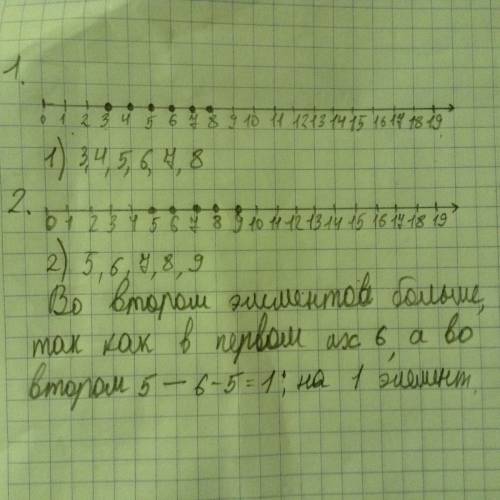 1.
0 1 2 3 4 5 6 7 8 9 10 11 12 13 14 15 16 17 18 19
1) 3,4,5,6,7,8
2.
0 1 2 3 4 5 6 7 8 9 10 11 12 13 14 15 16 17 18 19
2) 5,6,7,8,9
Во втором элементов больше,
так как в первом их 6, а во
втором 5 – 6-5=1; на 1 элемент.